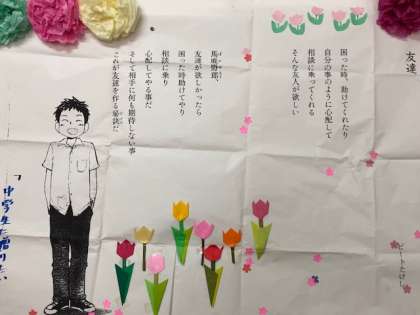 友達
ビートたけし
困った時、助けてくれたり
自分の事のように心配して
相談に乗ってくれる
そんな友人が欲しい
馬鹿野郎、
友達が欲しかったら
困った時助けてやり
相談に乗り
心配してやる事だ
そして相手に何も期待しない事
これが友達を作る秘訣だ
「中学生に贈りたい